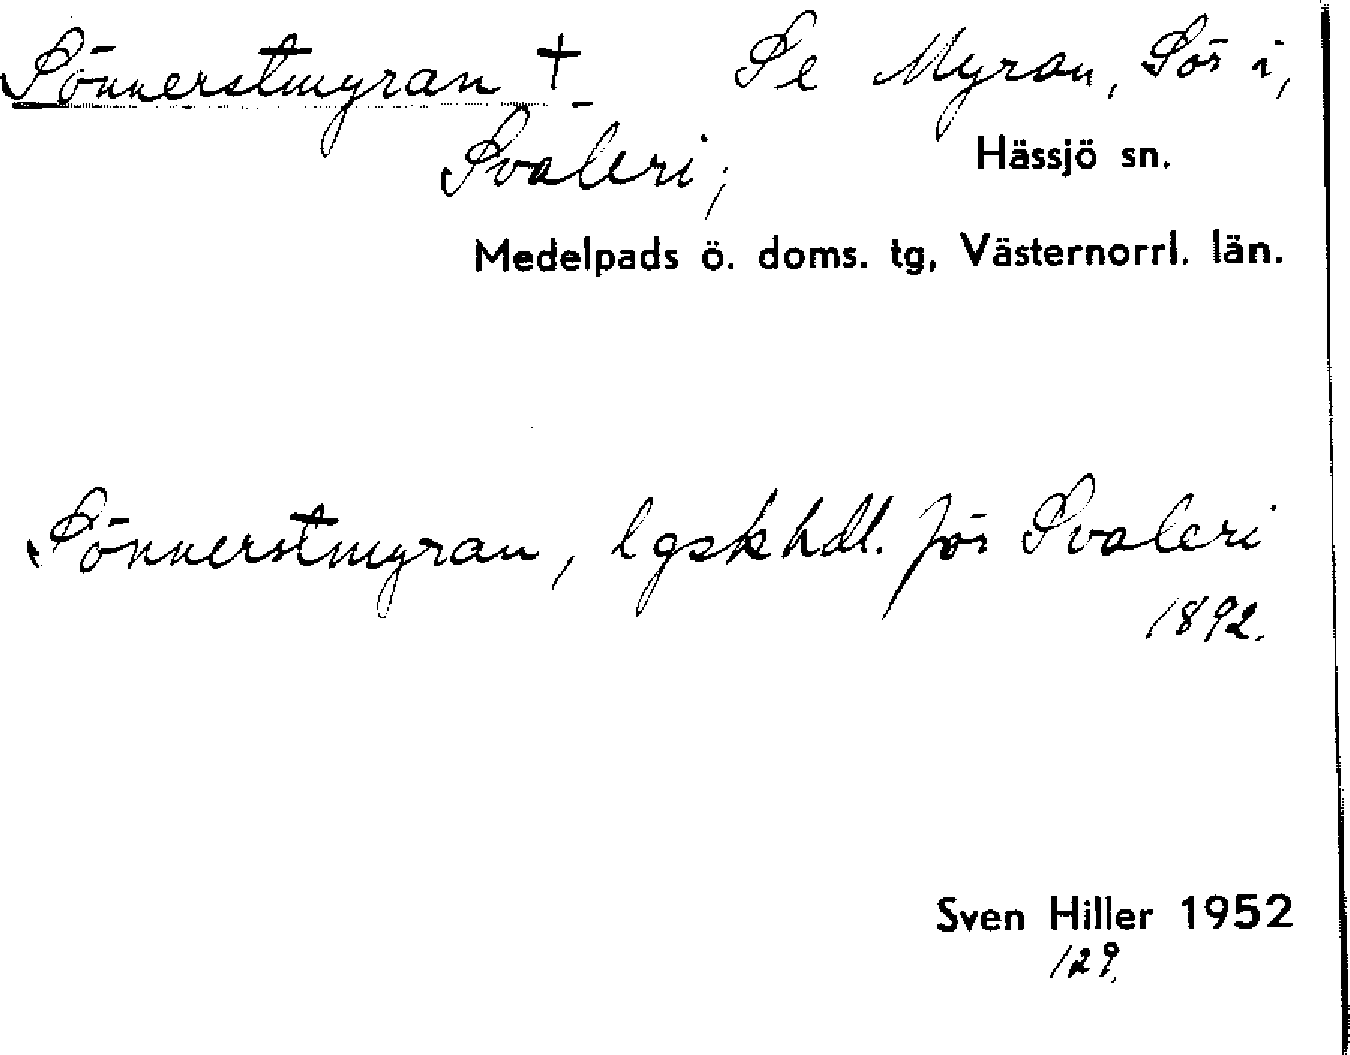 Sönnerstmyran † Se Myran, Sör i,
Svaleri; Hässjö sn.
Medelpads ö. doms. tg, Västernorrl. län.
Sönnerstmyran, lgskhdl.för Svaleri
1892.
Sven Hiller 1952
129.